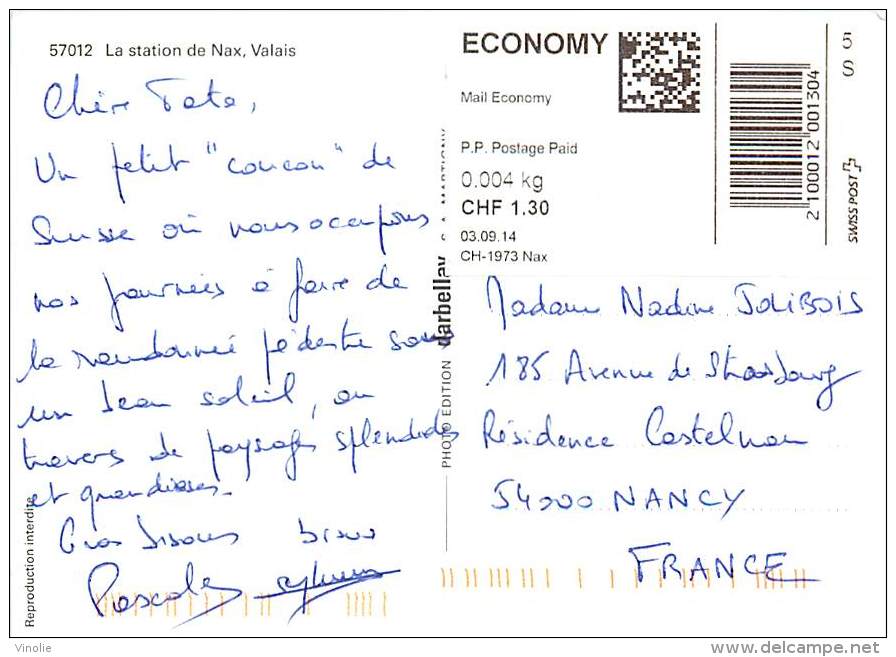 57012 La station de Nax, Valais
Chère Tata,
Un petit "coucou" de
Suisse où nous occupons
nos journées à faire de
la randonnée pédestre sous
un beau soleil, au
travers de paysages splendides
et grandioses.
Gros bisous bisous
Pascale
Reproduction interdite
PHOTO EDITION darbellay S.A. MARTIGNY
ECONOMY
Mail Economy
P.P. Postage Paid
0.004 kg
CHF 1.30
03.09.14
CH-1973 Nax
2 100012 001304
5
S
SWISS POST
Madame Nadine JOLIBOIS
185 Avenue de Strasbourg
Résidence Castelnau
54000 NANCY
FRANCE
Vinolie
delcampe.net